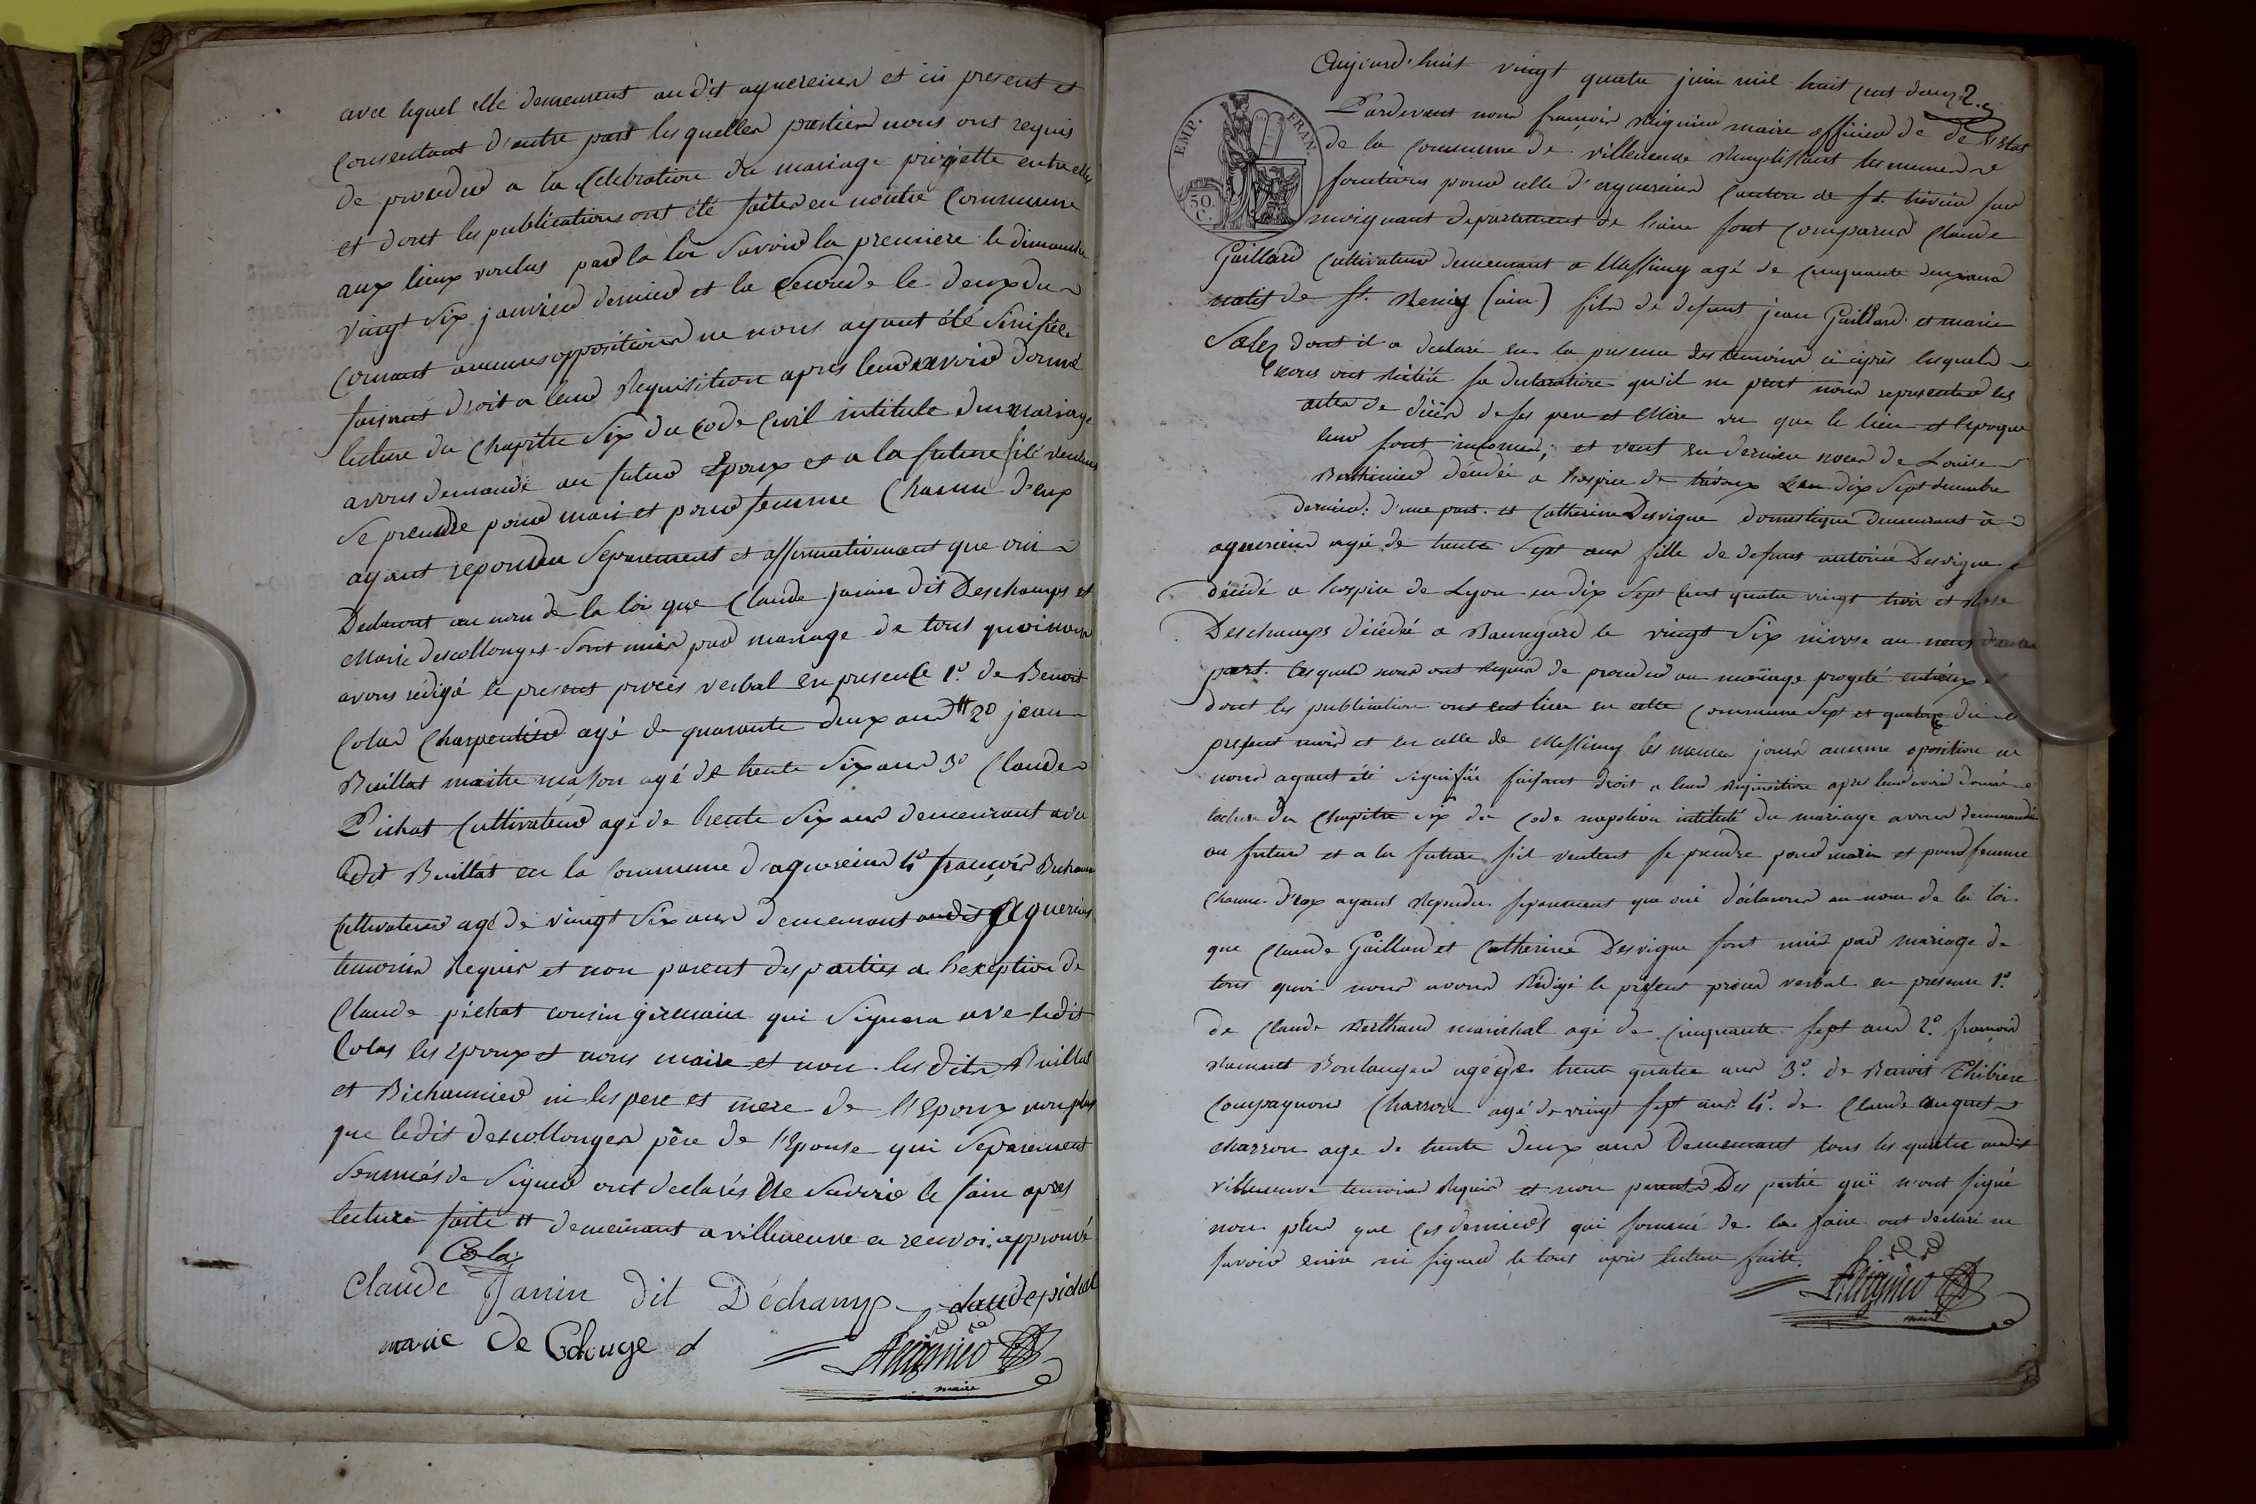 avec lequel elle demeurent au dit agnereins et ici present et
consentant d'autre part les quelles parties nous ont requis
de proceder a la Celebration du mariage projetté entre elles
et dont les publications ont été faites en notre Commune
aux lieux voulus par la loi Savoir la premiere le dimanche
vingt Six janvier dernier et la Seconde le deux du
Courant aucunes oppositions ne nous ayant été Sinifiée
faisant droit a leur Requisition après leur avoir donné
lecture du Chapitre Six du Code Civil intitule du mariage
avons demandé au futur Epoux et a la future s'ils veulent
Se prendre pour mari et pour femme Chacun d'eux
ayant repondu Separement et affirmativement que oui
Declarons au nom de la loi que Claude janin dit Deschamps et
Marie descollonges Sont unis par mariage de tout quoi nous
avons redigé le present procès verbal en presence 1º. de Benoit
Colas Charpentier agé de quarante deux ans # 2º jean
Buillat maitre masson agé de trente Six ans 3º Claude
Pichat Cultivateur agé de trente Six ans demeurant avec
ledit Buillat en la Commune d'agnereins 4º françois
Cultivateur agé de vingt Six ans demeurant audit Agnereins
temoins Requis et non parent des parties a l'exeption de
Claude pichat cousin germain qui Signera avec ledit
Colas les epoux et nous maire et non les dits Buillat
et Bichonnier ni les pere et mere de l'Epoux non plus
que ledit descollonges père de l'épouse qui Separement
Sommés de Signer ont declarés Ne Savoir le faire après
lecture faite # demeurant a villeneuve a renvoi approuvé
Colas
Claude Janin dit Déchamp claude pichat
marie De Colonge
maire
Aujourd'huit vingt quatre juin mil huit cent douze
Pardevant nous françois maire officier de de l'Etat
de la Commune de villeneuve Remplissant les memes
fonctions pour celle d'agnereins Canton de St. trivier sur
moignant departement de l'ain sont Comparus Claude
Gaillard Cultivateur demeurant a Messimy agé de Cinquante deux ans
natif de St. Remy (ain) fils de defunt jean Gaillard et marie
Salez dont il a declaré en la presence des temoins ci après lesquels
nous ont réitéré sa declaration qu'il ne peut nous representer les
actes de décès de ses pere et Mère vu que le lieu et l'epoque
leur sont inconnus; et veuf en derniere noces de Louise
Berthinier décédée a l'hospice de trévoux Le dix Sept decembre
dernier: d'une part. et Catherine Desvigne domestique demeurant à
agnereins agée de trente Sept ans fille de defunt antoine Desvigne
décédé a l'hospice de Lyon en dix Sept Cent quatre vingt trois et
Deschamps décédé a Beauregard le vingt Six nivose an neuf d'autre
part. lesquels nous ont requis de proceder au mariage projeté entr'eux et
dont les publication ont eut lieu en cette Commune Sept et quatorze du
present mois et en celle de Messimy les memes jours aucune oposition ne
nous ayant été signifiée faisant droit a leur Requisition après leur avoir donné
lecture du Chapitre six du Code napoléon intitulé du mariage avons demandé
au futur et a la future s'il veulent se prendre pour mari et pour femme
Chacun d'eux ayant repondu separement que oui déclarons au nom de la loi
que Claude Gaillard et Catherine Desvigne sont unis par mariage de
tout quoi nous avons Rédigé le present procès verbal en presence 1º.
de Claude Berthaud maréchal agé de Cinquante sept ans 2º. françois
Boulanger agé de trente quatre ans 3º. de Benoit Thibiere
Compagnon Charron agé de vingt sept ans. 4º. de Claude
charron age de trente deux ans demeurant tous les quatre audit
villeneuve temoins Requis et non parents Des partie qui n'ont signé
non plus que Ces derniers qui sommé de le faire ont declaré ne
savoir ecrire ni signer le tout après lecture faite.
maire
EMP. FRAN.
50. C.